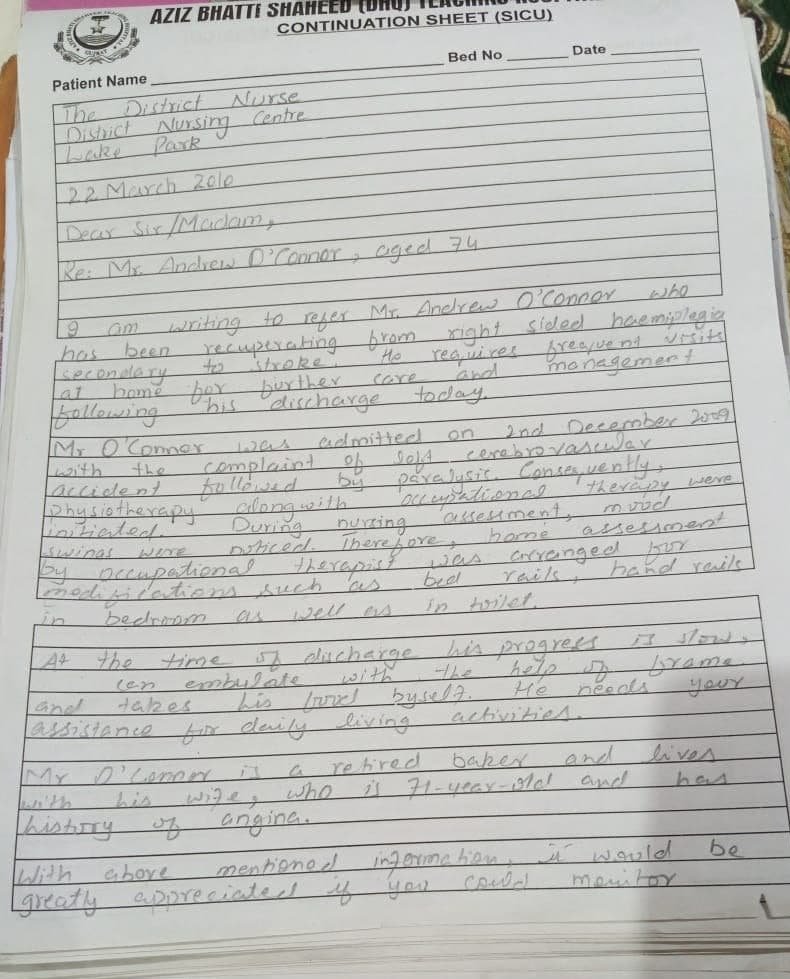 AZIZ BHATTI SHAHEED (DHQ)
CONTINUATION SHEET (SICU)
Patient Name Bed No Date
The District Nurse
District Nursing Centre
Lake Park
22 March 2010
Dear Sir/Madam,
Re: Mr. Andrew O'Connor, aged 74
I am writing to refer Mr. Andrew O'Connor who
has been recuperating from right sided haemiplegia
secondary to stroke. He requires frequent visits
at home for further care and management
following his discharge today.
Mr O'Connor was admitted on 2nd December 2009
with the complaint of left cerebrovascular
accident followed by paralysis. Consequently,
physiotherapy alongwith occupational therapy were
initiated. During nursing assessment, mood
swings were noticed. Therefore, home assessment
by occupational therapist was arranged for
modifications such as bed rails, hand rails
in bedroom as well as in toilet.
At the time of discharge his progress is slow,
can embulate with the help of frame
and takes his food byself. He needs your
assistance for daily living activities.
Mr O'Connor is a retired baker and lives
with his wife, who is 71-year-old and has
history of angina.
With above mentioned information, it would be
greatly appreciated if you could monitor